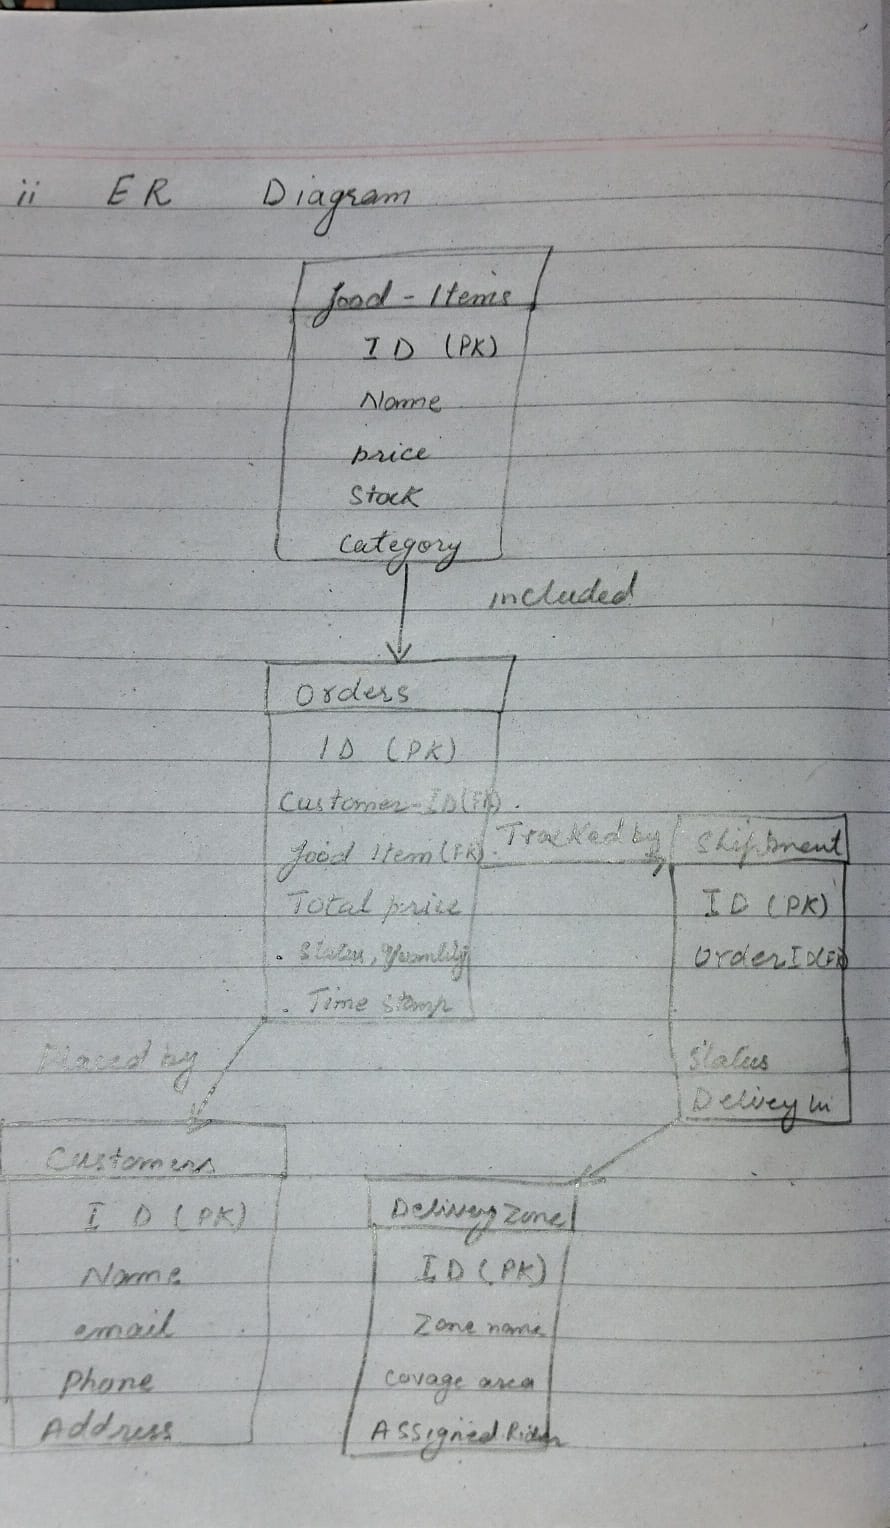 ii ER Diagram
food - Items
ID (PK)
Name
price
Stock
Category
included
Orders
ID (PK)
Customer-ID(FK)
food Item (FK)
Total price
Status, Quantity
Time stamp
Tracked by
Shiptment
ID (PK)
Order ID(FK)
Status
Delivey in
Placed by
Customers
ID (PK)
Name
email
Phone
Address
Delivery zone
ID (PK)
Zone name
Covage area
Assigned Rider